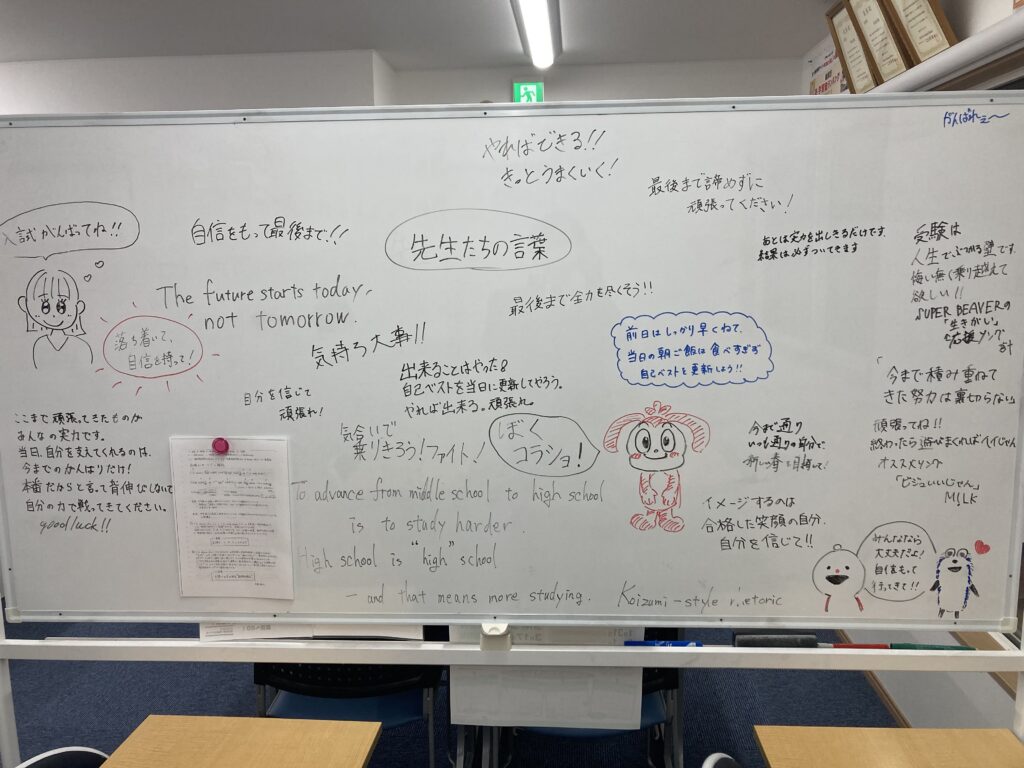 がんばれぇ〜
やればできる!!
きっとうまくいく!
最後まで諦めずに
頑張ってください!
入試がんばってね!!
自信をもって最後まで!!
先生たちの言葉
あとは実力を出しきるだけです。
結果は必ずついてきます
受験は
人生でぶつかる壁です。
悔い無く乗り越えて
欲しい!!
SUPER BEAVERの
「生きがい」
応援ソング
The future starts today,
not tomorrow.
落ち着いて、
自信を持って!
最後まで全力を尽くそう!!
気持ち大事!!
前日はしっかり早くねて、
当日の朝ご飯は食べすぎず
自己ベストを更新しよう!!
出来ることはやった。
自己ベストを当日に更新してやろう。
やれば出来る。頑張れ。
自分を信じて
頑張れ!
「今まで積み重ねて
きた努力は裏切らない」
ここまで頑張ってきたものが
みんなの実力です。
当日、自分を支えてくれるのは、
今までのがんばりだけ!
本番だからと言って背伸びしないで
自分の力で戦ってきてください。
good luck!!
気合いで
乗りきろう!ファイト!
ぼく
コラショ!
今まで通り
いつも通りの自分で
新しい春を目指して!
頑張ってね!!
終わったら遊べまくればヘイじゃん
オススメソング
「ビジュいいじゃん」
M!LK
To advance from middle school to high school
is to study harder.
High school is "high" school
— and that means more studying.
Koizumi-style rhetoric
イメージするのは
合格した笑顔の自分.
自分を信じて!!
みんななら
大丈夫だよ!
自信もって
行ってきて!!